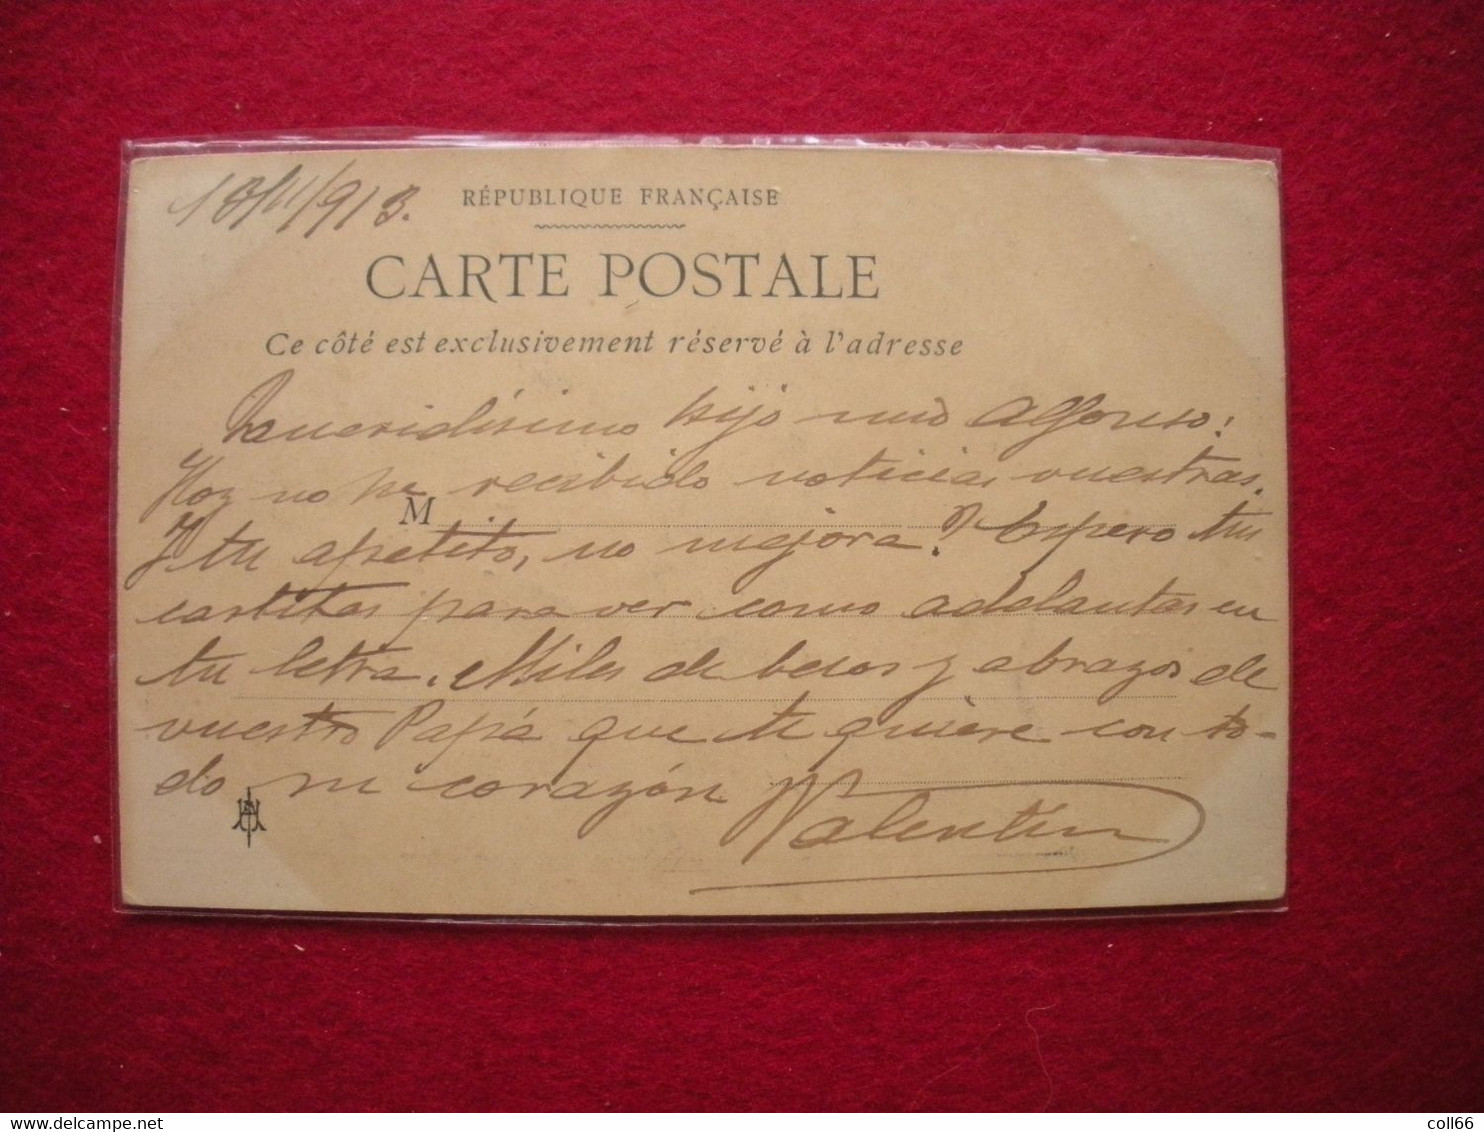 18/11/913.
RÉPUBLIQUE FRANÇAISE
CARTE POSTALE
Ce côté est exclusivement réservé à l'adresse
Queridísimo hijo mio Alfonso:
Hoy no he recibido noticias vuestras.
M
Y tu apetito, no mejora? Espero tus
cartitas para ver como adelantas en
tu letra. Miles de besos y abrazos de
vuestro Papá que te quiere con to-
do su corazón
Valentin
coll66